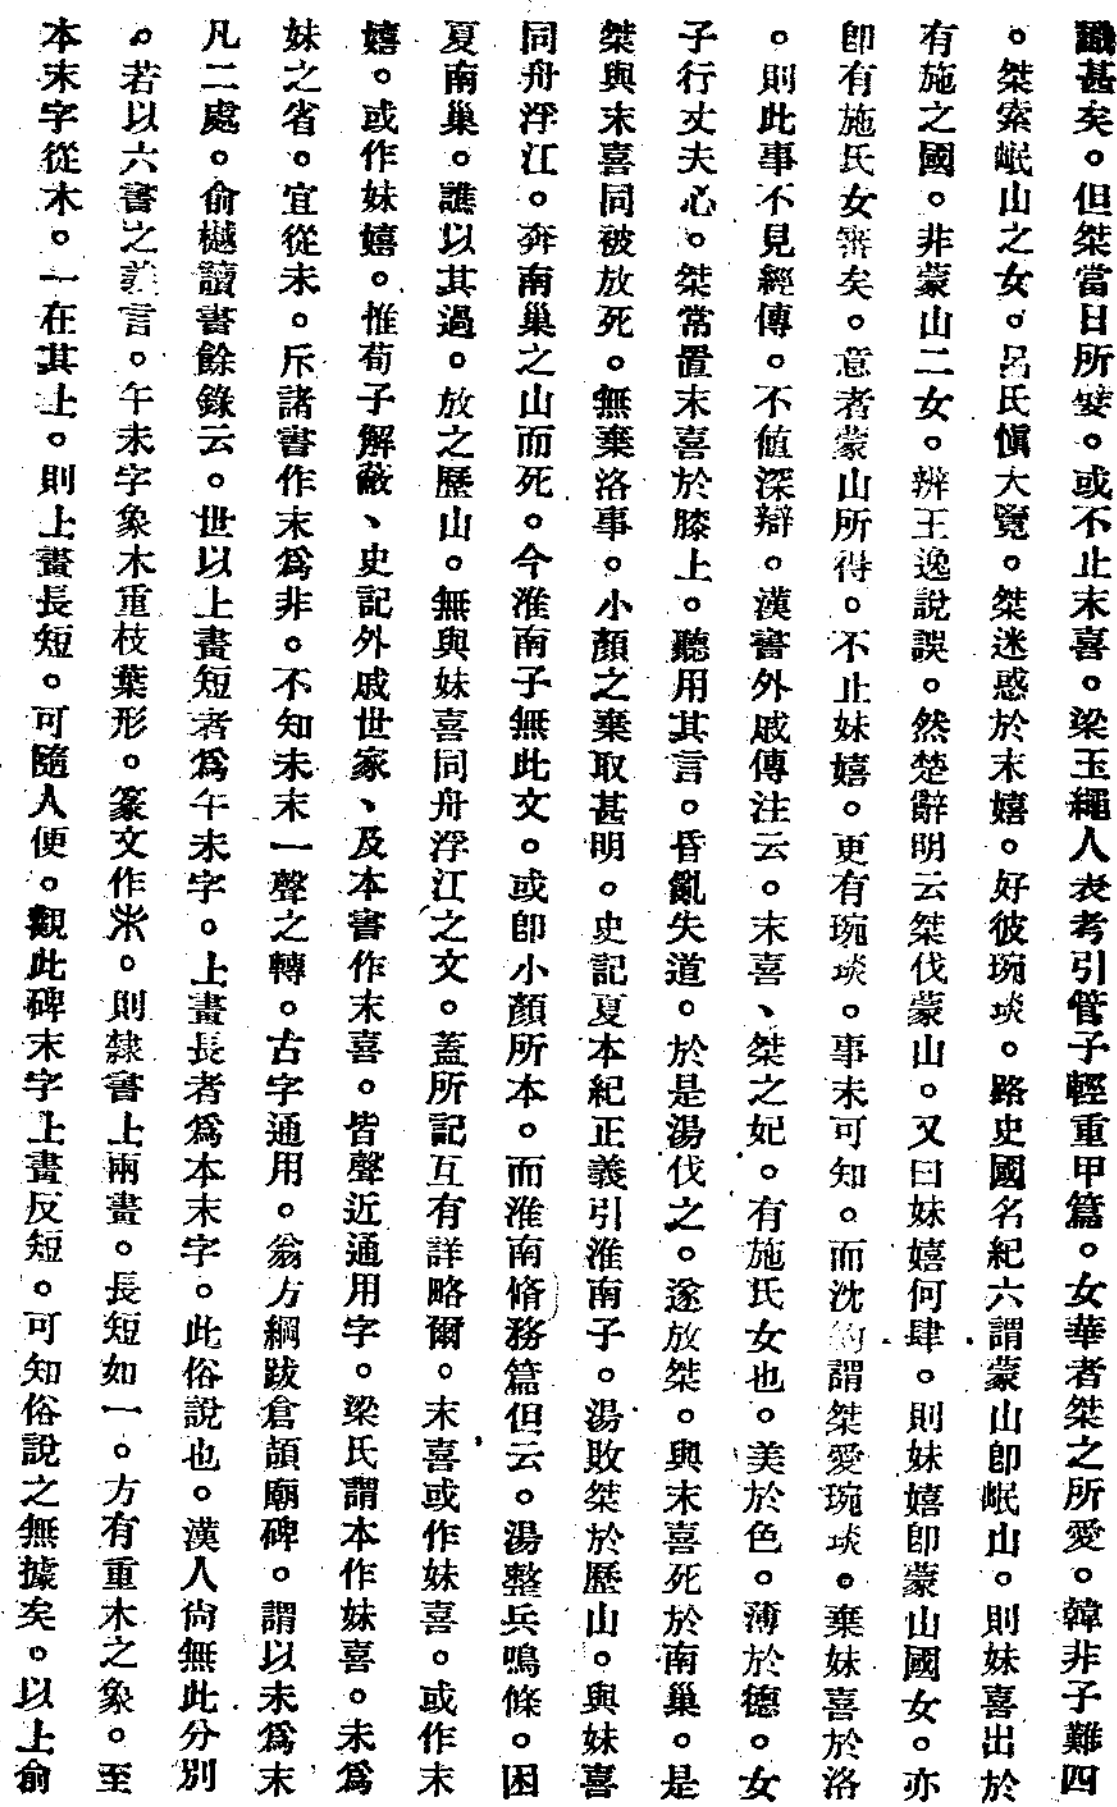 識甚矣。但桀當日所嬖。或不止末喜。梁玉繩人表考引管子輕重甲篇。女華者桀之所愛。韓非子難四
。桀索岷山之女。呂氏愼大覽。桀迷惑於末嬉。好彼琬琰。路史國名紀六謂蒙山卽岷山。則妹喜出於
有施之國。非蒙山二女。辨王逸說誤。然楚辭明云桀伐蒙山。又曰妹嬉何肆。則妹嬉卽蒙山國女。亦
卽有施氏女審矣。意者蒙山所得。不止妹嬉。更有琬琰。事未可知。而沈約謂桀愛琬琰。棄妹喜於洛
。則此事不見經傳。不値深辯。漢書外戚傳注云。末喜、桀之妃。有施氏女也。美於色。薄於德。女
子行丈夫心。桀常置末喜於膝上。聽用其言。昏亂失道。於是湯伐之。遂放桀。與末喜死於南巢。是
桀與末喜同被放死。無棄洛事。小顏之棄取甚明。史記夏本紀正義引淮南子。湯敗桀於歷山。與妹喜
同舟浮江。奔南巢之山而死。今淮南子無此文。或卽小顏所本。而淮南脩務篇但云。湯整兵鳴條。困
夏南巢。譙以其過。放之歷山。無與妹喜同舟浮江之文。蓋所記互有詳略爾。末喜或作妹喜。或作末
嬉。或作妹嬉。惟荀子解蔽、史記外戚世家、及本書作末喜。皆聲近通用字。梁氏謂本作妹喜。未爲
妹之省。宜從未。斥諸書作末爲非。不知未末一聲之轉。古字通用。翁方綱跋倉頡廟碑。謂以未爲末
凡二處。俞樾讀書餘錄云。世以上畫短者爲午未字。上畫長者爲本末字。此俗說也。漢人尙無此分別
。若以六書之義言。午未字象木重枝葉形。篆文作𣎳。則隸書上兩畫。長短如一。方有重木之象。至
本末字從木。一在其上。則上畫長短。可隨人便。觀此碑末字上畫反短。可知俗說之無據矣。以上俞